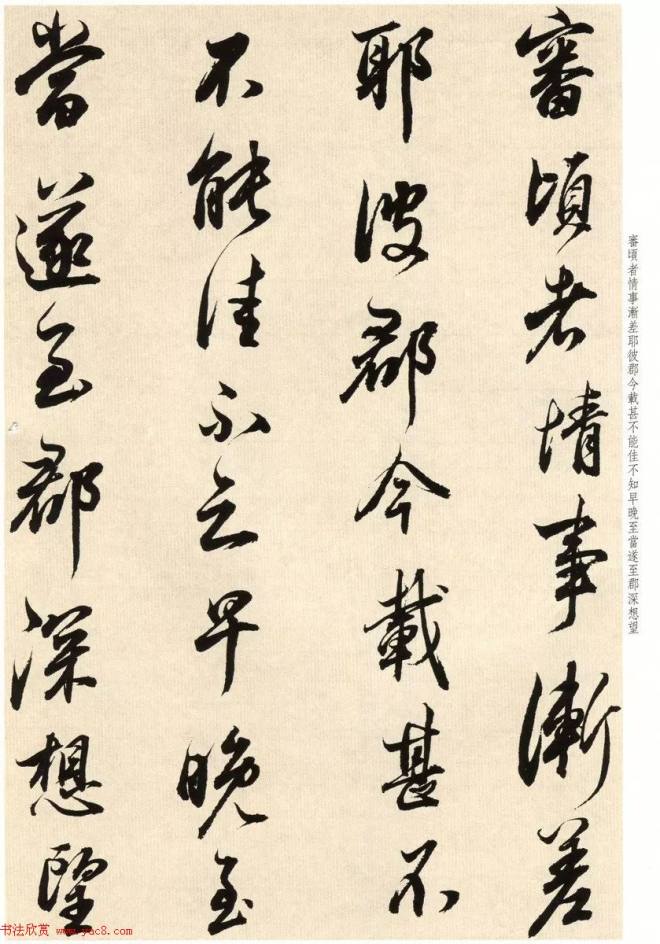 審頃者情事漸差
耶彼郡今載甚不
不能佳不知早晚至
當遂至郡深想望
審頃者情事漸差耶彼郡今載甚不能佳不知早晚至當遂至郡深想望
书法欣赏 www.yac8.com